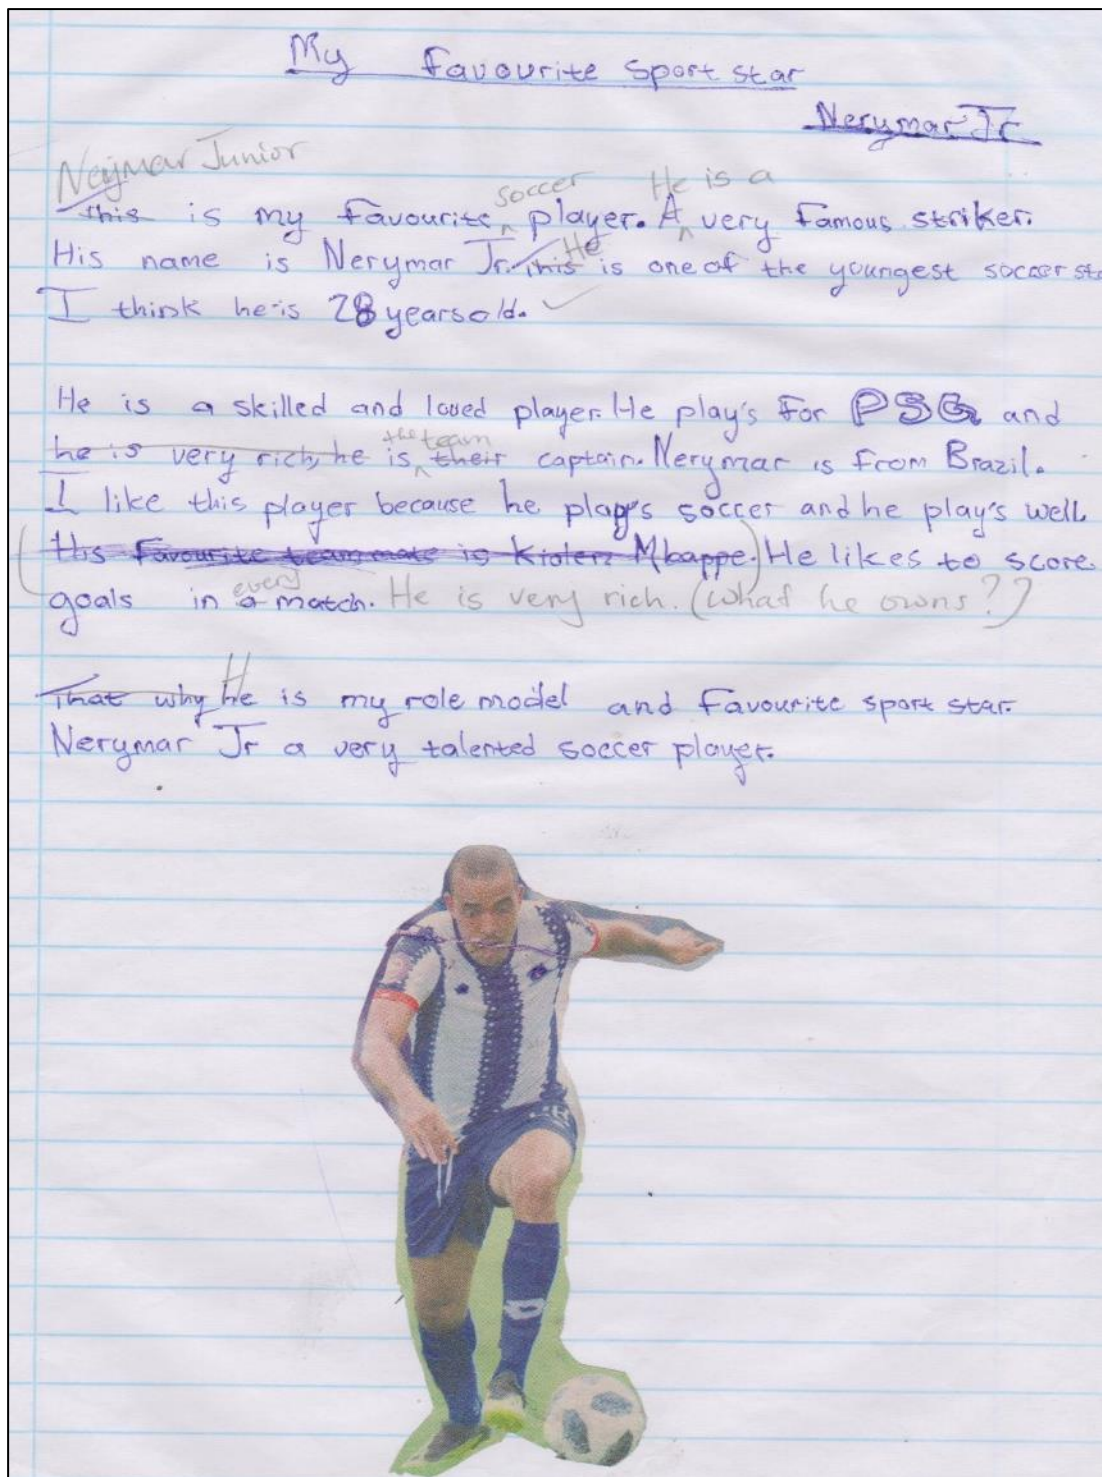 My Favourite sport star
Nerymar Jr
Neijmar Junior
soccer He is a
this is my favourite player. A very famous striker.
He
His name is Nerymar Jr. this is one of the youngest soccer sta
I think he is 28 years old.
He is a skilled and loved player. He play's for PSG and
the team
he is very rich, he is their captain. Nerymar is from Brazil.
I like this player because he play's soccer and he play's well
His favourite team mate is Kiolen Mbappe. He likes to score
every
goals in a match. He is very rich. (what he owns??)
H
That why he is my role model and favourite sport star.
Nerymar Jr a very talented soccer player.